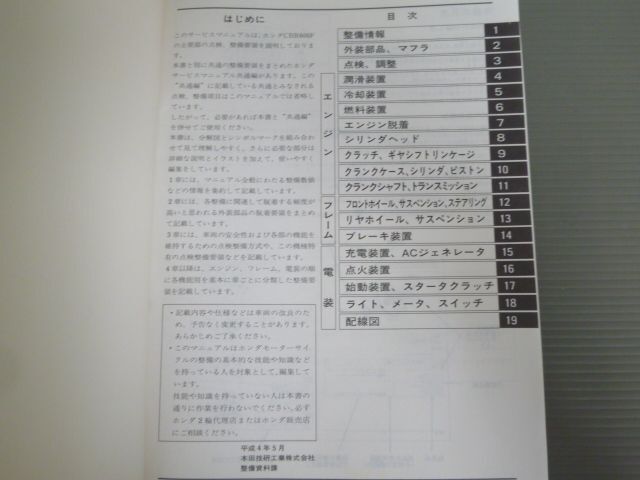 はじめに
このサービスマニュアルは、ホンダCBR400Fの
主要部の点検、整備要領を説明しておりま
す。
本書と別に共通の整備要領をまとめたホンダ
サービスマニュアル共通編があります。この
"共通編"に記載している共通とみなされる
点検、整備項目はこのマニュアルでは省略し
ています。
したがって、必要があれば本書と"共通編"
を併せてご使用ください。
本書は、分解図とシンボルマークを組み合わ
せて見て理解しやすく、さらに必要な部分は
詳細な説明とイラストを加えて、使いやすく
編集をしています。
1章には、マニュアル全般にわたる整備数値
などの情報を集めて記載しています。
2章には、各整備に関連して脱着する頻度が
高いと思われる外装部品の脱着要領をまとめ
て記載しています。
3章には、車両の安全性および各部の機能を
維持するための点検整備方式や、この機種特
有の点検整備要領などを記載しています。
4章以降は、エンジン、フレーム、電装の順
に各機能別を基本に章ごとに分類した整備要
領を記載しています。
・記載内容や仕様などは車両の改良のた
め、予告なく変更することがあります。
あらかじめご了承ください。
・このマニュアルはホンダモーターサイ
クルの整備の基本的な技能や知識など
を持っている人を対象として、編集して
います。
技能や知識を持っていない人は本書の
通りに作業を行わないでください。必ず
ホンダ2輪代理店またはホンダ販売店
にご相談ください。
平成4年5月
本田技研工業株式会社
整備資料課
目次
整備情報 1
外装部品、マフラ 2
点検、調整 3
エンジン
潤滑装置 4
冷却装置 5
燃料装置 6
エンジン脱着 7
シリンダヘッド 8
クラッチ、ギヤシフトリンケージ 9
クランクケース、シリンダ、ピストン 10
クランクシャフト、トランスミッション 11
フレーム
フロントホイール、サスペンション、ステアリング 12
リヤホイール、サスペンション 13
ブレーキ装置 14
電装
充電装置、ACジェネレータ 15
点火装置 16
始動装置、スタータクラッチ 17
ライト、メータ、スイッチ 18
配線図 19